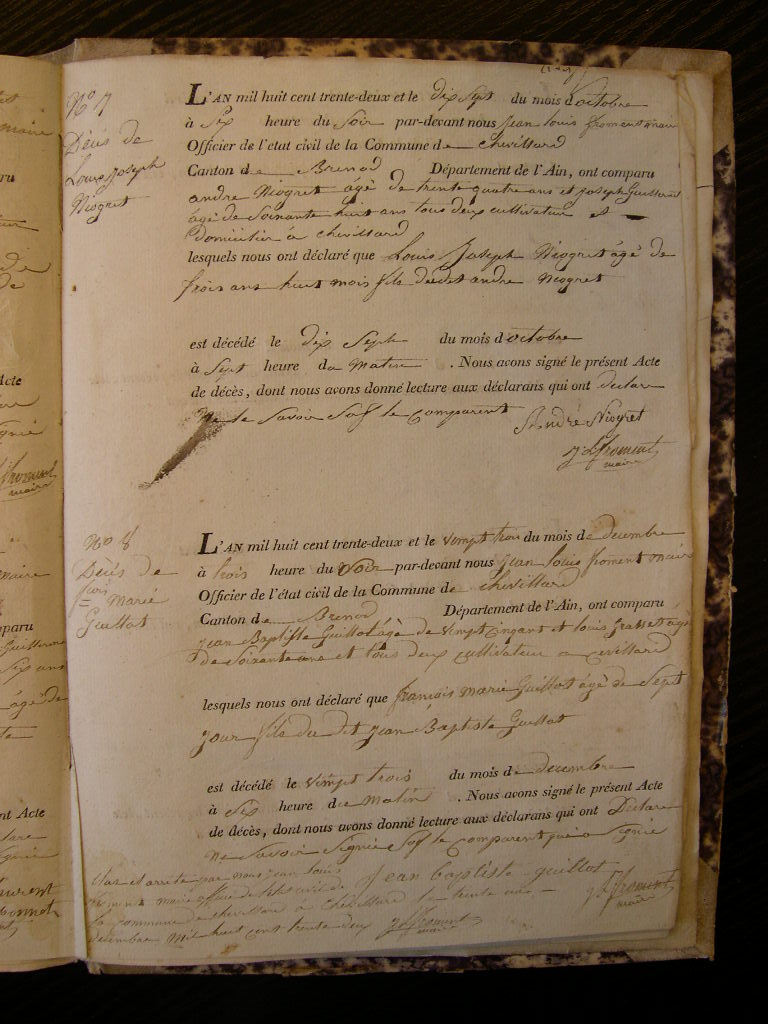 N.o 7
Décés de
Louis Joseph
Niogret
L'AN mil huit cent trente-deux et le dix Sept du mois d'octobre
à Six heure du Soir par-devant nous Jean Louis froment maire
Officier de l'état civil de la Commune de chevillard
Canton de Brenod Département de l'Ain, ont comparu
andre Niogret agé de trente quatre ans et Joseph Guillermet
agé de Soixante huit ans tous deux cultivateur et
domicilier à chevillard
lesquels nous ont déclaré que Louis Joseph Niogret âgé de
trois ans huit mois fils dudit andre Niogret
est décédé le dix Sept du mois d'octobre
à Sept heure du Matin . Nous avons signé le présent Acte
de décès, dont nous avons donné lecture aux déclarans qui ont declare
Ne le Savoir Sof le Comparent
André Niogret
J. L. froment
maire
N.o 8
Décés de
françois Marie
Guillot
L'AN mil huit cent trente-deux et le vimpt trois du mois de decembre
à trois heure du Soir par-devant nous Jean Louis froment maire
Officier de l'état civil de la Commune de chevillard
Canton de Brenod Département de l'Ain, ont comparu
Jean Baptiste Guillot âgé de vimpt cinq ant et Louis agé
de Soixante ans et tous deux cultivateur a cevillard
lesquels nous ont déclaré que françois marie Guillot âgé de Sept
Jour fils du dit Jean Baptiste Guillot
est décédé le vimpt trois du mois de decembre
à Six heure du Matin . Nous avons signé le présent Acte
de décès, dont nous avons donné lecture aux déclarans qui ont Declare
ne Savoir Signié Sof le comparent qui a Signié
Jean Baptiste guillot
J. L. froment
maire
Clos et arrété par nous Jean Louis
froment maire officier de l'état civil de
la commune de chevillard à chevillard le trente un
decembre Mil huit cent trente deux J. L. froment
maire